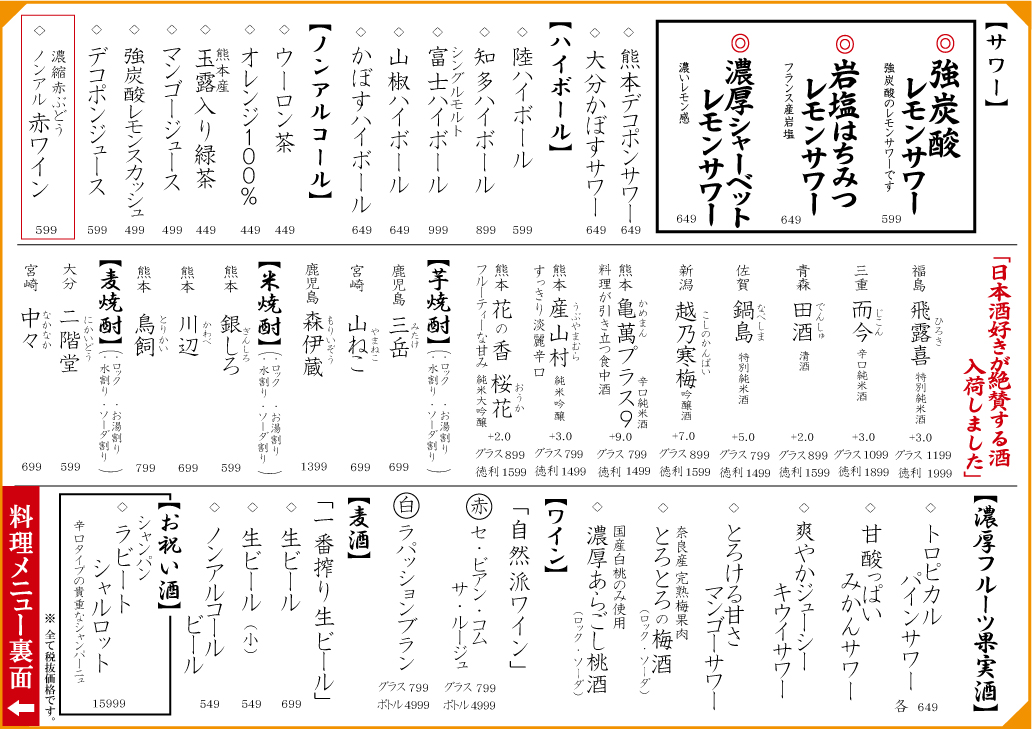 【サワー】
◎強炭酸
レモンサワー
強炭酸のレモンサワーです
599
◎岩塩はちみつ
レモンサワー
フランス産岩塩
649
◎濃厚シャーベット
レモンサワー
濃いレモン感
649
◇熊本デコポンサワー
649
◇大分かぼすサワー
649
【ハイボール】
◇陸ハイボール
599
◇知多ハイボール
899
シングルモルト
◇富士ハイボール
999
◇山椒ハイボール
649
◇かぼすハイボール
649
【ノンアルコール】
◇ウーロン茶
449
◇オレンジ100%
449
熊本産
◇玉露入り緑茶
449
◇マンゴージュース
499
◇強炭酸レモンスカッシュ
499
◇デコポンジュース
599
濃縮赤ぶどう
◇ノンアル赤ワイン
599
「日本酒好きが絶賛する酒
入荷しました」
福島 飛露喜 ひろき 特別純米酒
+3.0
グラス 1199
徳利 1999
三重 而今 じこん 辛口純米酒
+3.0
グラス 1099
徳利 1899
青森 田酒 でんしゅ 清酒
+2.0
グラス 899
徳利 1599
佐賀 鍋島 なべしま 特別純米酒
+5.0
グラス 799
徳利 1499
新潟 越乃寒梅 こしのかんばい 純米吟醸酒
+7.0
グラス 899
徳利 1599
熊本 亀萬プラス9 かめまん 辛口純米酒
料理が引き立つ食中酒
+9.0
グラス 799
徳利 1499
熊本 産山村 うぶやまむら 純米吟醸
すっきり淡麗辛口
+3.0
グラス 799
徳利 1499
熊本 花の香 桜花 おうか
フルーティーな甘み 純米大吟醸
+2.0
グラス 899
徳利 1599
【芋焼酎】(・ロック ・お湯割り
・水割り ・ソーダ割り)
鹿児島 三岳 みたけ
699
宮崎 山ねこ やまねこ
699
鹿児島 森伊蔵 もりいぞう
1399
【米焼酎】(・ロック ・お湯割り
・水割り ・ソーダ割り)
熊本 銀しろ ぎんしろ
599
熊本 川辺 かわべ
699
熊本 鳥飼 とりかい
799
【麦焼酎】(・ロック ・お湯割り
・水割り ・ソーダ割り)
大分 二階堂 にかいどう
599
宮崎 中々 なかなか
699
【濃厚フルーツ果実酒】
◇トロピカル
パインサワー
◇甘酸っぱい
みかんサワー
◇爽やかジューシー
キウイサワー
◇とろける甘さ
マンゴーサワー
奈良産 完熟梅果肉
◇とろとろの梅酒
(ロック・ソーダ)
国産白桃のみ使用
◇濃厚あらごし桃酒
(ロック・ソーダ)
各 649
【ワイン】
「自然派ワイン」
赤 セ・ビアン・コム
サ・ルージュ
グラス 799
ボトル 4999
白 ラパッションブラン
グラス 799
ボトル 4999
【麦酒】
「一番搾り生ビール」
◇生ビール
699
◇生ビール(小)
549
◇ノンアルコール
ビール
549
【お祝い酒】
シャンパン
◇ラビート
シャルロット
辛口タイプの貴重なシャンパーニュ
15999
※ 全て税抜価格です。
料理メニュー裏面